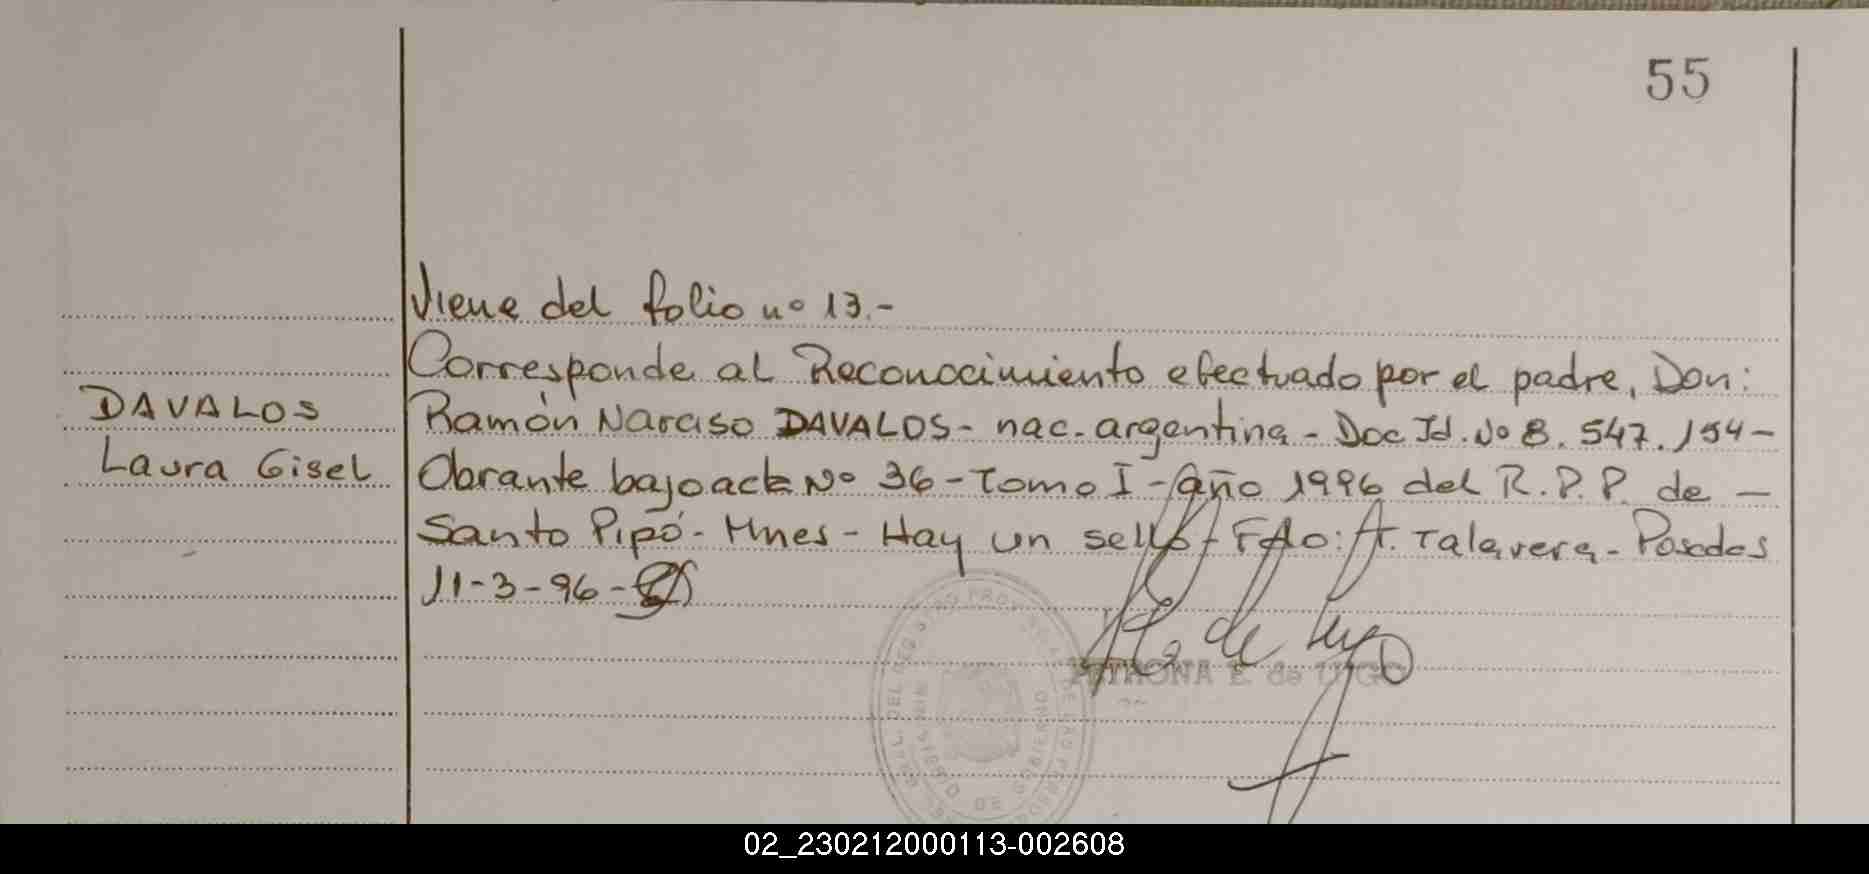 55
Viene del folio nº 13.-
Corresponde al Reconocimiento efectuado por el padre, Don:
DAVALOS
Ramón Narciso DAVALOS - nac. argentina - Doc Id. Nº 8.547.154-
Laura Gisel
Obrante bajo acta Nº 36 - Tomo I - año 1996 del R.P.P. de -
Santo Pipó - Mnes - Hay un sello - FdO: A. Talavera - Posadas
11-3-96-
PETRONA E. de LUGO
02_230212000113-002608